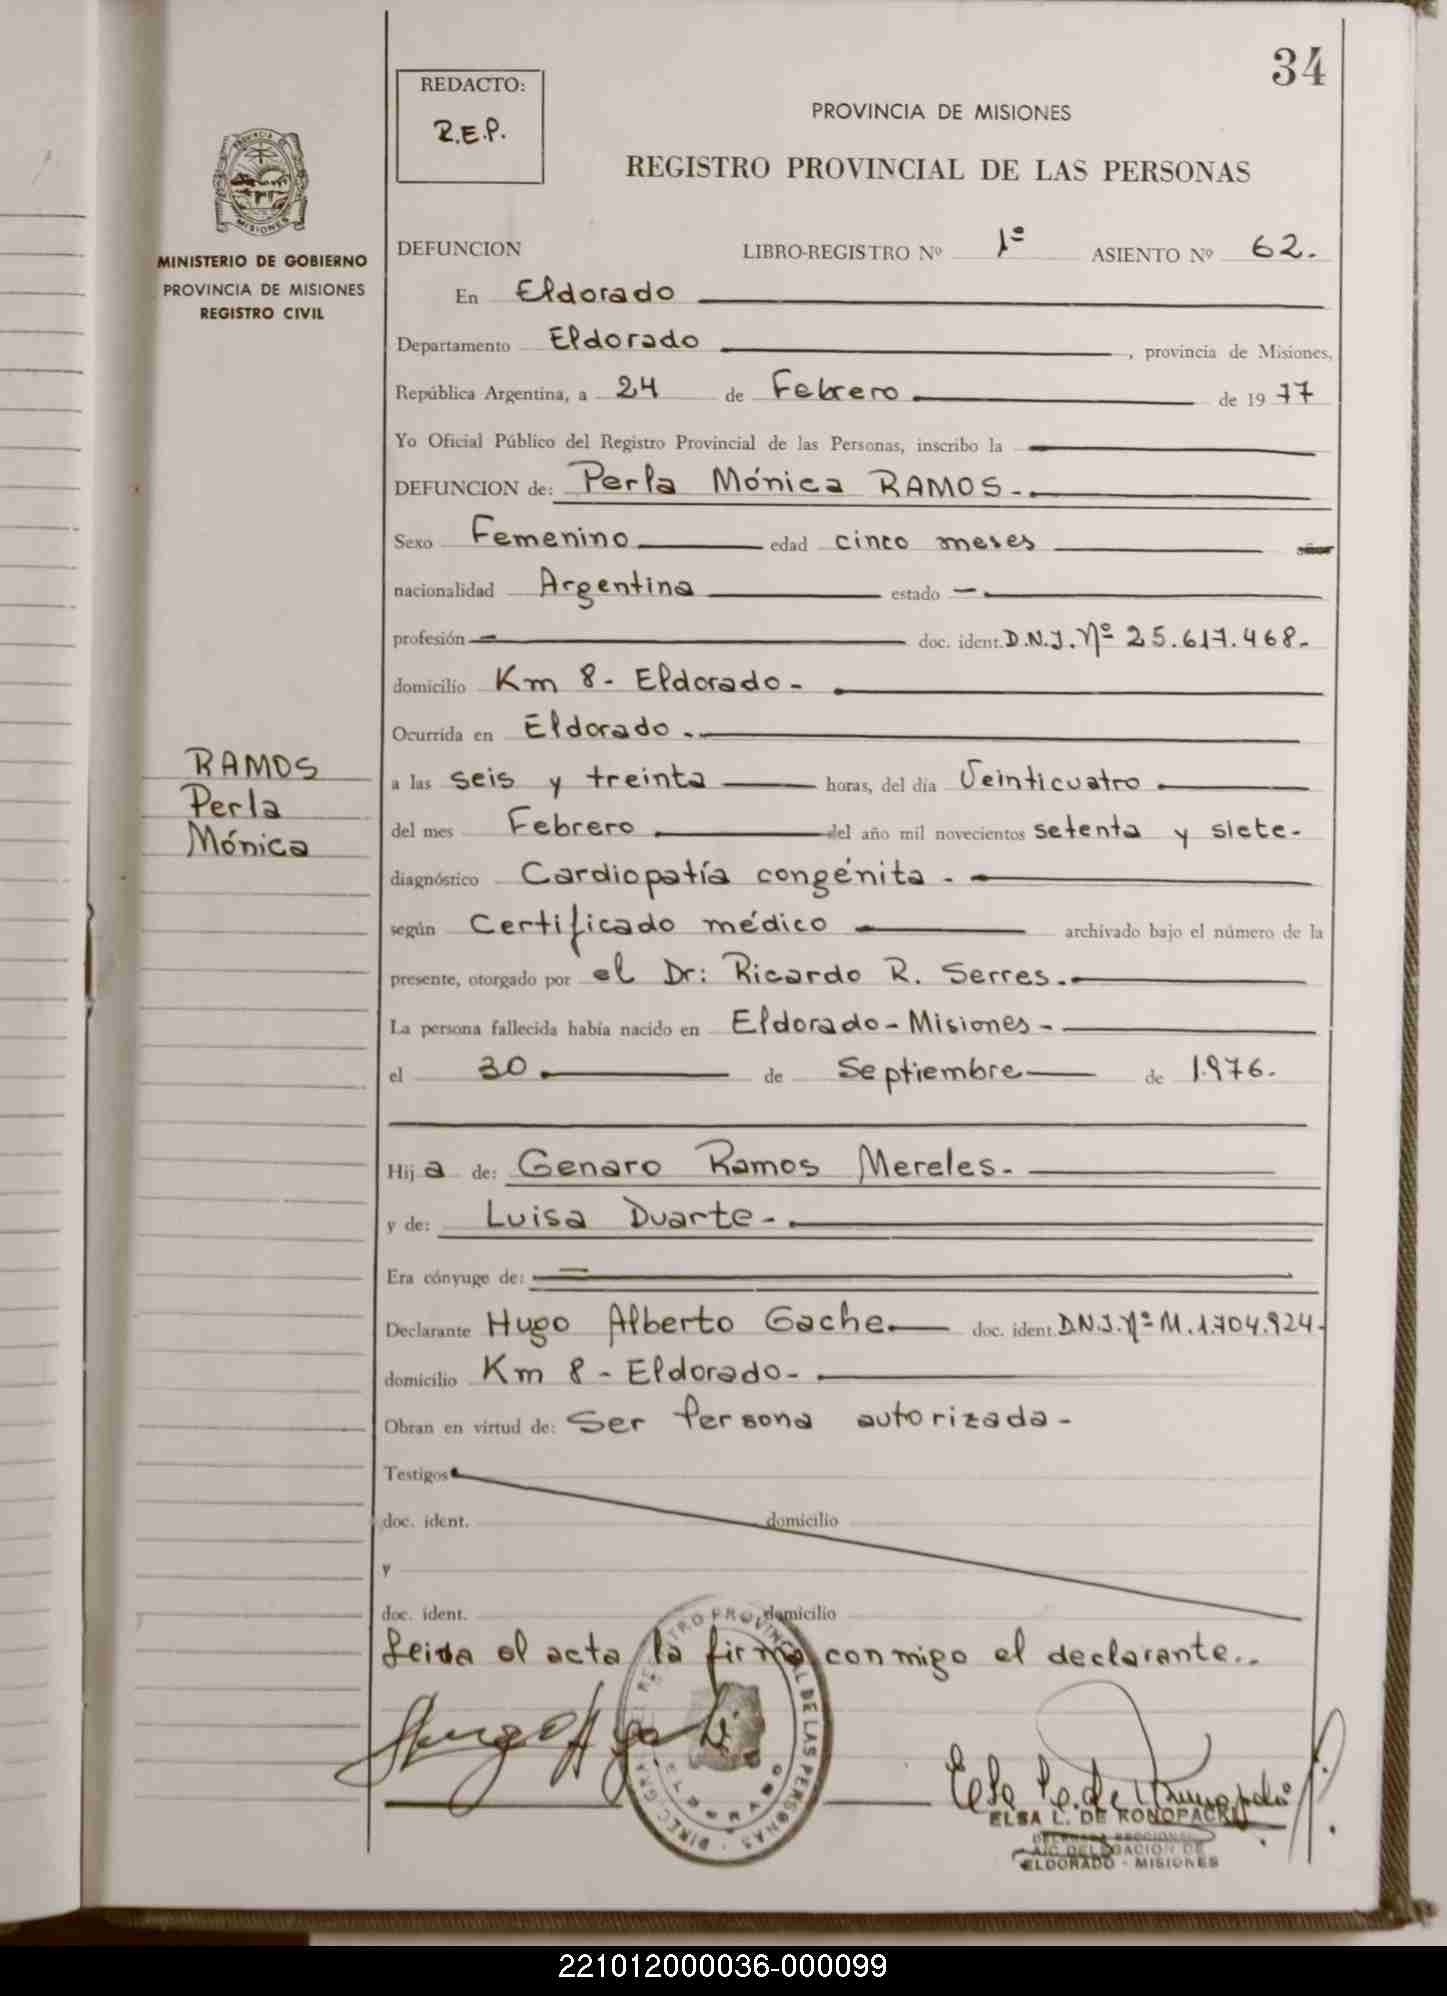 34
REDACTO:
R.E.P.
PROVINCIA DE MISIONES
REGISTRO PROVINCIAL DE LAS PERSONAS
MINISTERIO DE GOBIERNO
PROVINCIA DE MISIONES
REGISTRO CIVIL
DEFUNCION LIBRO-REGISTRO Nº 1º ASIENTO Nº 62.
En Eldorado
Departamento Eldorado , provincia de Misiones,
República Argentina, a 24 de Febrero de 1977
Yo Oficial Público del Registro Provincial de las Personas, inscribo la
DEFUNCION de: Perla Mónica RAMOS.-
Sexo Femenino edad cinco meses
nacionalidad Argentina estado —
profesión — doc. ident. D.N.I. Nº 25.617.468.-
domicilio Km 8 - Eldorado -
Ocurrida en Eldorado.-
RAMOS
Perla
Mónica
a las seis y treinta horas, del día Veinticuatro
del mes Febrero del año mil novecientos setenta y siete-
diagnóstico Cardiopatía congénita.-
según Certificado médico archivado bajo el número de la
presente, otorgado por el Dr: Ricardo R. Serres.-
La persona fallecida había nacido en Eldorado - Misiones -
el 30 de Septiembre de 1.976.
Hija de: Genaro Ramos Mereles.-
y de: Luisa Duarte -
Era cónyuge de: —
Declarante Hugo Alberto Gache doc. ident. D.N.I. Nº M. 1.704.924-
domicilio Km 8 - Eldorado -
Obran en virtud de: Ser Persona autorizada -
Testigos
doc. ident. domicilio
y
doc. ident. domicilio
Leida el acta la firma conmigo el declarante..
REGISTRO PROVINCIAL DE LAS PERSONAS
ELDORADO
ELSA L. DE KONOPACKI
DELEGADA SECCIONAL
A/C DELEGACION DE
ELDORADO - MISIONES
221012000036-000099